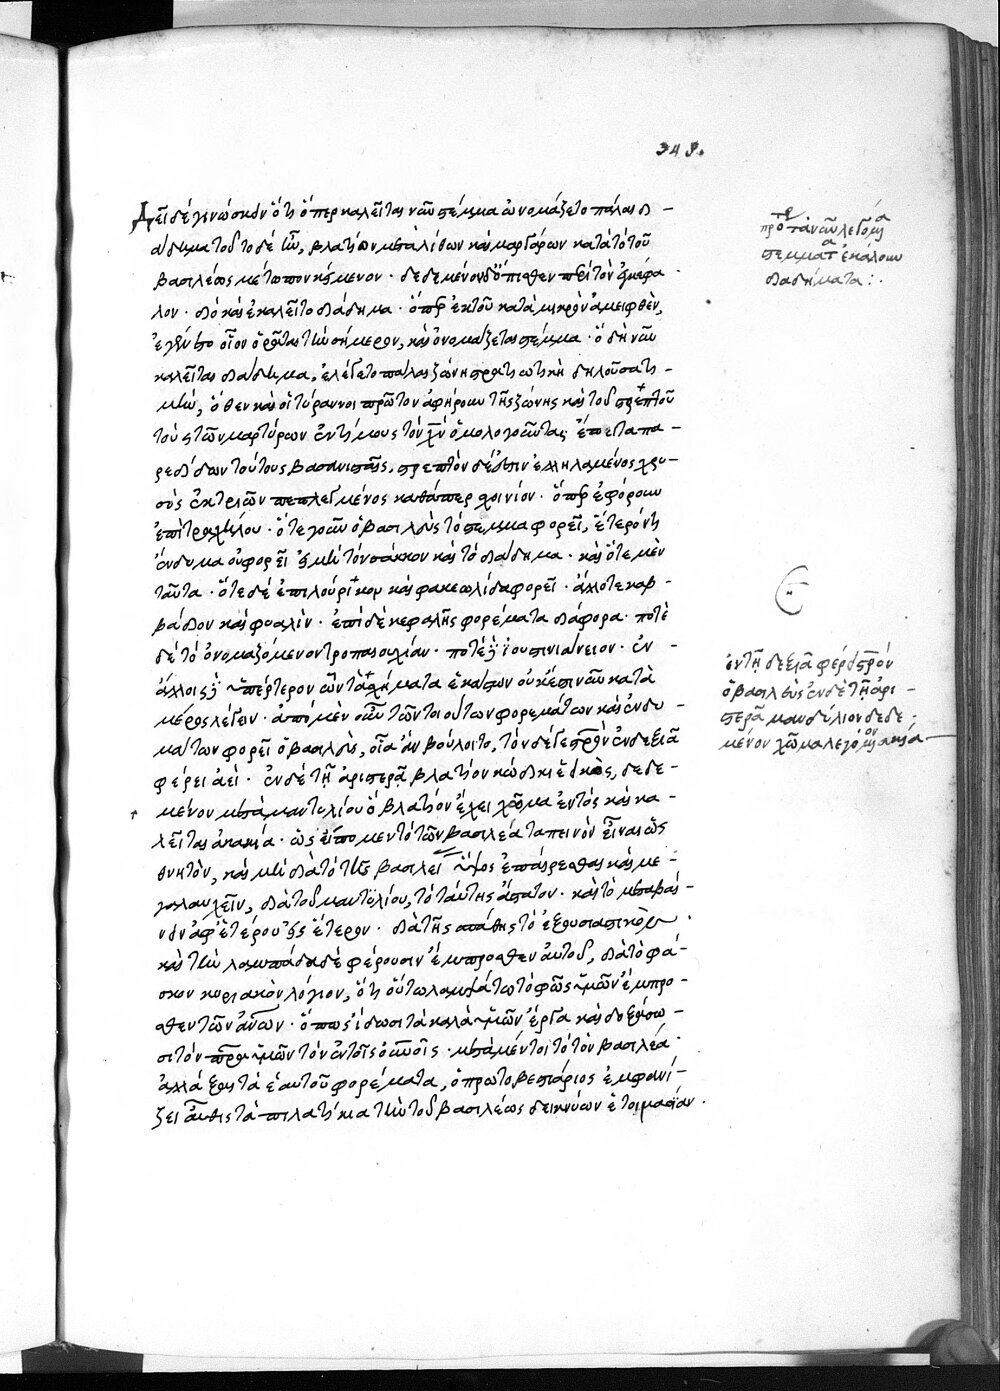 343.
Δεῖ δὲ γινώσκειν ὅτι ὅπερ καλεῖται νῦν στέμμα ὠνομάζετο πάλαι δι-
άδημα τοῦτο δὲ ἦν, βλατίον μετὰ λίθων καὶ μαργάρων κατὰ τὸ τοῦ
βασιλέως μέτωπον κείμενον · δεδεμένον δὲ ὄπισθεν περὶ τὸν ἐγκέφα
λον · διὸ καὶ ἐκαλεῖτο διάδημα · ὅπερ ἐκ τοῦ κατὰ μικρὸν ἀμειφθὲν,
ἐγένετο οἷον ὁρᾶται τὴν σήμερον, καὶ ὀνομάζεται στέμμα · ὃ δὴ νῦν
καλεῖται διάδημα, ἐλέγετο πάλαι ζώνη στρατιωτικὴ δηλοῦσα τι-
μήν, ὅθεν καὶ οἱ τύραννοι πρῶτον ἀφῄρουν τῆς ζώνης καὶ τοῦ στρεπτοῦ
τοὺς τῶν μαρτύρων ἐντίμους τὸν χν ὁμολογοῦντας ἔπειτα πα-
ρεδίδων τούτους βασανισταῖς, στρεπτὸν δέ ἐστιν ἐληλαμένος χρυ-
σὸς ἐκ τριῶν πεπλεγμένος καθάπερ σχοινίον · ὅπερ ἐφόρουν
ἐπὶ τραχήλου · ὅτε γοῦν ὁ βασιλεὺς τὸ στέμμα φορεῖ, ἕτερόν τι
ἔνδυμα οὐ φορεῖ εἰ μὴ τὸν σάκκον καὶ τὸ διάδημα · καὶ ὅτε μὲν
ταῦτα · ὅτε δὲ ἐπιλούρικον καὶ φακεωλίδα φορεῖ · ἄλλοτε καβ-
βάδιον καὶ φουαλὶν · ἐπὶ δὲ κεφαλῆς φορέματα διάφορα · ποτὲ
δὲ τὸ ὀνομαζόμενον τροπαιουχίαν · ποτὲ δὲ ἰουστινιάνειον · ἐν
ἄλλοις δὲ ὑπέρτερον ὧν τὰ σχήματα ἑκάστων οὐκ ἔστι νῦν κατὰ
μέρος λέγειν · ἀπὸ μὲν οὖν τῶν τοιούτων φορεμάτων καὶ ἐνδυ-
μάτων φορεῖ ὁ βασιλεὺς, οἷα ἂν βούλοιτο, τὸν δέ γε στρὸν ἐν δεξιᾷ
φέρει ἀεὶ · ἐν δὲ τῇ ἀριστερᾷ βλατίον κώδικι ἐοικὸς, δεδε-
μένον μετὰ μαντυλίου ὃ βλατίον ἔχει χῶμα ἐντὸς καὶ κα-
λεῖται ἀκακία · ὡς εἴπομεν τὸ τῶν βασιλέα ταπεινὸν εἶναι ὡς
θνητὸν, καὶ μὴ διὰ τὸ τῆς βασιλεί ὕψος ἐπαίρεσθαι καὶ με-
γαλαυχεῖν, διὰ τοῦ μαντυλίου, τὸ ταύτης ἄστατον · καὶ τὸ μεταβαί-
νειν ἀφ' ἑτέρου εἰς ἕτερον · διὰ τῆς σπάθης τὸ ἐξουσιαστικὸν ·
καὶ τὴν λαμπάδα δὲ φέρουσιν ἔμπροσθεν αὐτοῦ, διὰ τὸ φά-
σκον κυριακὸν λόγιον, ὅτι οὕτω λαμψάτω τὸ φῶς ὑμῶν ἔμπρο-
σθεν τῶν ἀνων · ὅπως ἴδωσι τὰ καλὰ ὑμῶν ἔργα καὶ δοξάσω-
σι τὸν πρα ὑμῶν τὸν ἐν τοῖς οὐνοῖς · μετὰ μέντοι τὸ τὸν βασιλέα
ἀλλάξαι τὰ ἑαυτοῦ φορέματα, ὁ πρωτοβεστιάριος ἐμφανί-
ζει αὖθις τὰ στιλατίκια τὴν τοῦ βασιλέως δεικνύων ἑτοιμασίαν .
πρότε τὰ νῦν λεγόμα
στέμματα ἐκάλουν
διαδήματα :
ἐν τῇ δεξιᾷ φέρει στρόν
ὁ βασιλεὺς ἐν δὲ τῇ ἀρι-
στερᾷ μανδύλιον δεδε-
μένον χῶμα λεγόμον ἀκακία